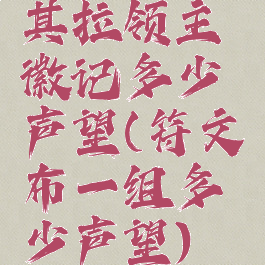 其拉领主
徽记多少
声望(符文
布一组多
少声望)